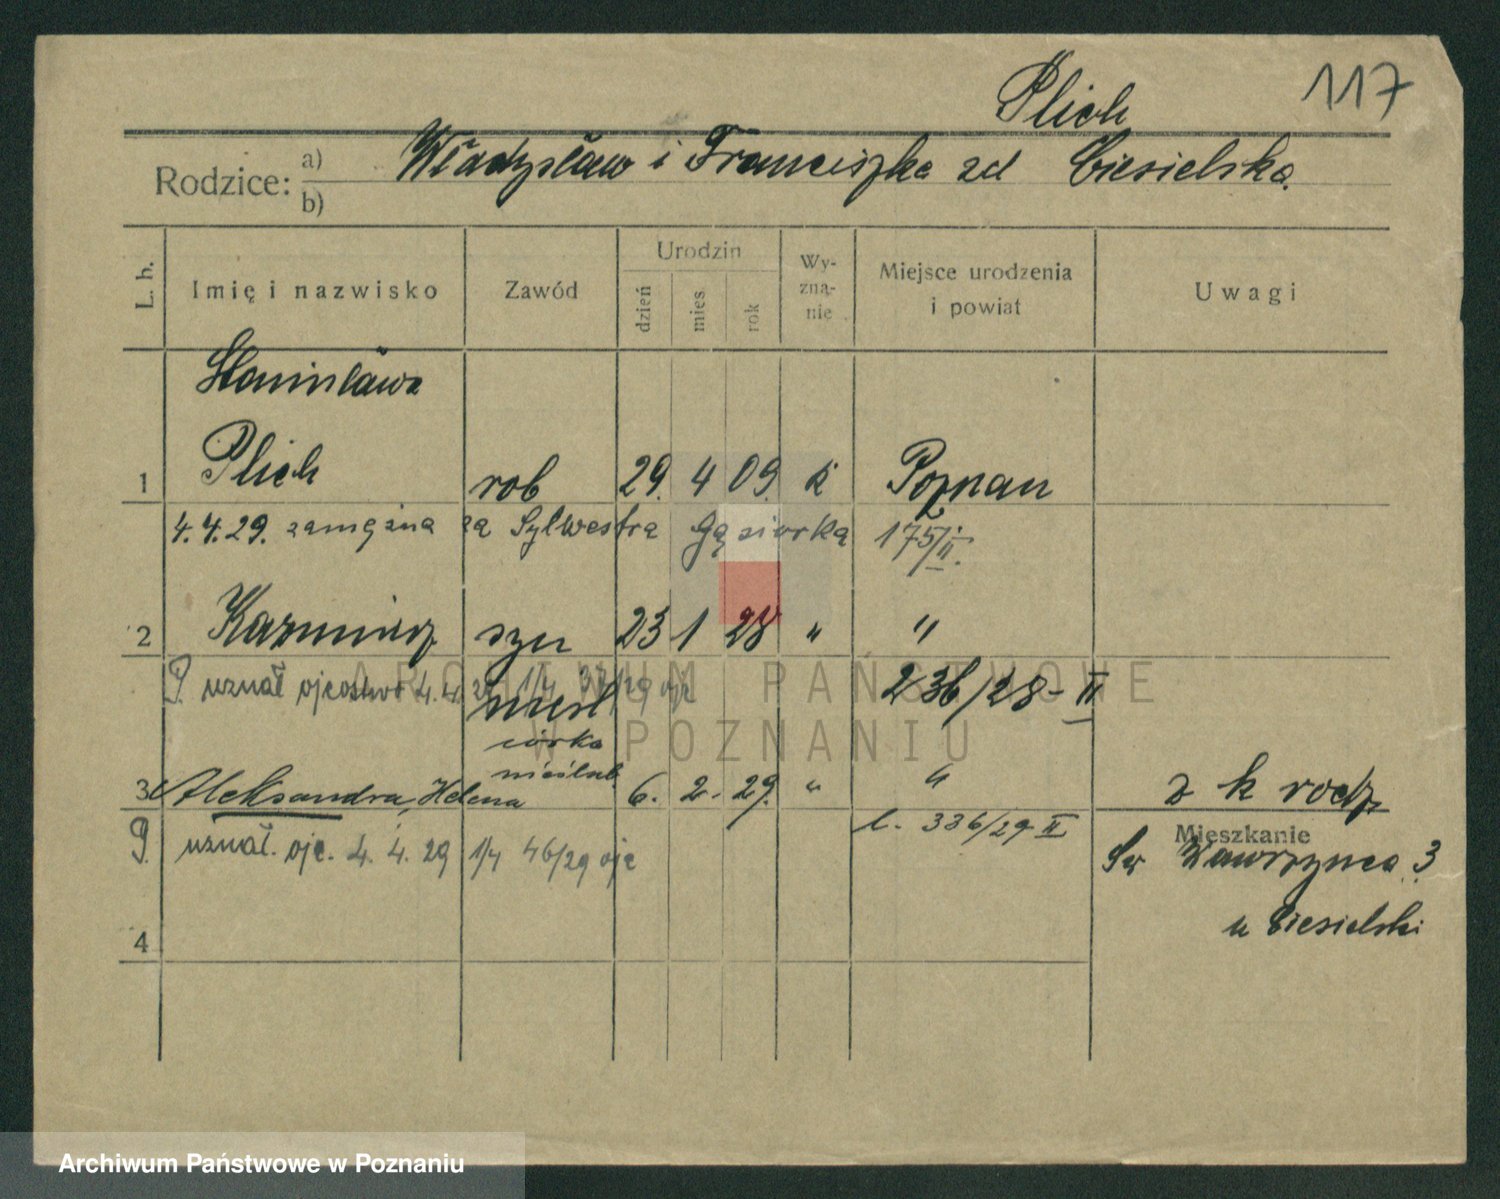 Plich 117
Rodzice: a) Władysław i Franciszka zd Ciesielska
b)
L. b. Imię i nazwisko Zawód Urodzin dzień mies rok Wy-zna-nie Miejsce urodzenia i powiat Uwagi
Stanisława
1 Plich rob 29. 4 09. k Poznan
4. 4. 29. zamężna za Sylwestra Gąsiorka 175/II.
2 Kazimierz syn 23 1 28 " "
uznał ojcostwo 4. 4. 29 1/4 37/29 ojc 236/28-II
nieśl
córka
nieślub.
3 Aleksandra, Helena 6. 2. 29. " "
z k rodz
l. 336/29 II
Mieszkanie
uznał. ojc. 4. 4. 29 1/4 46/29 ojc
Św Wawrzynca 3
u Ciesielski
4
ARCHIWUM PAŃSTWOWE
W POZNANIU
Archiwum Państwowe w Poznaniu